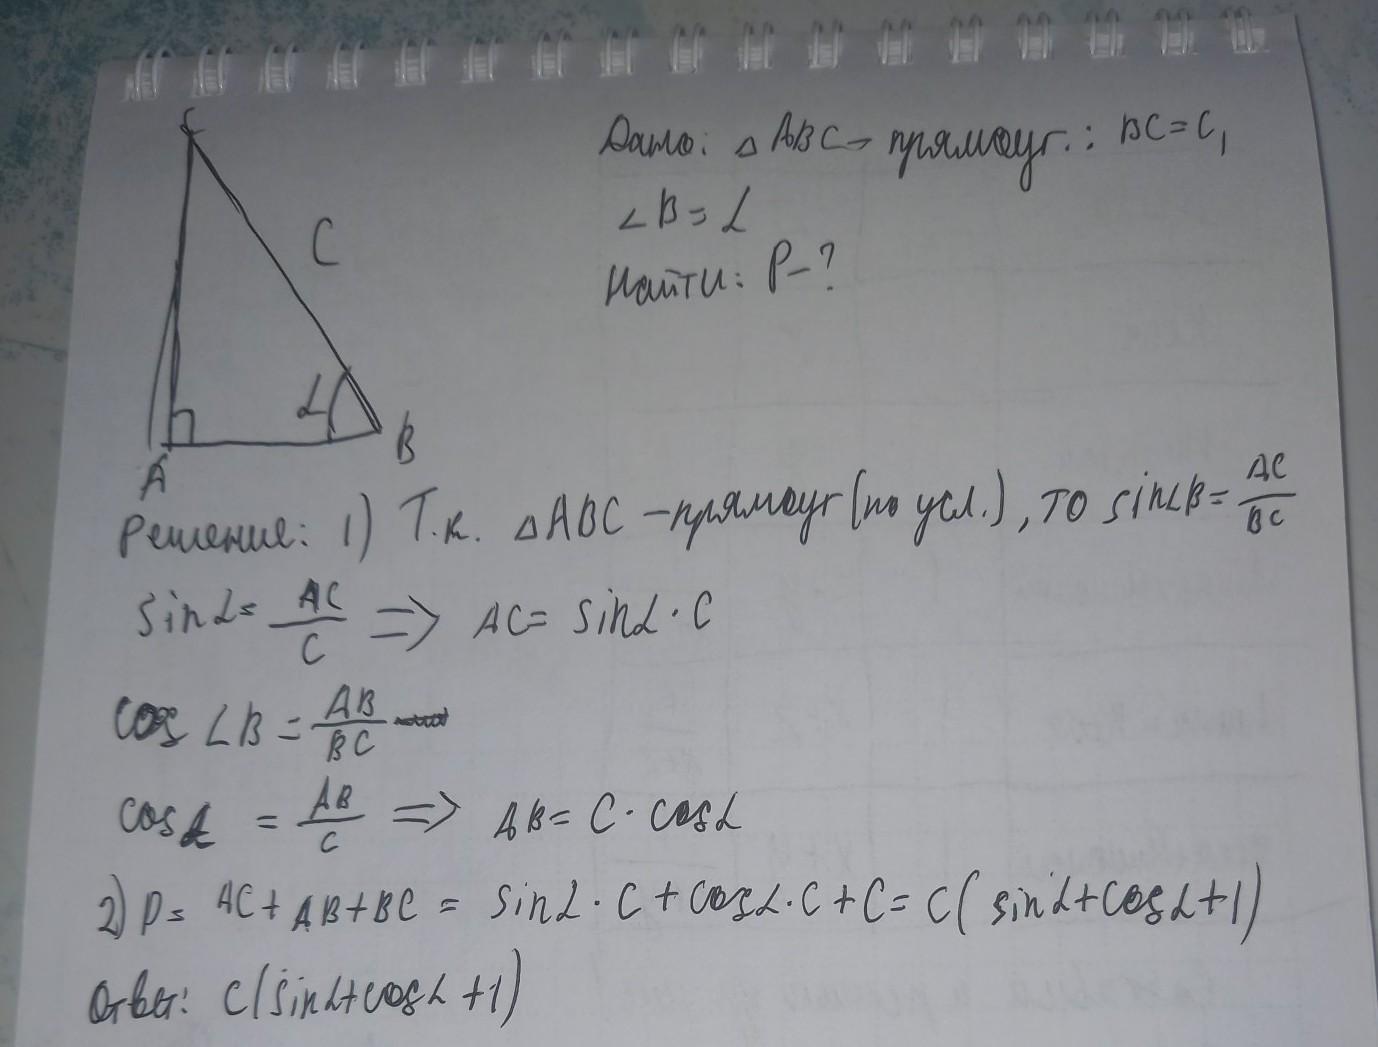 C
Дано: △ABC - прямоуг.: BC=C,
∠B=α
C
Найти: P-?
α
B
A
Решение: 1) Т.к. △ABC - прямоуг (по усл.), то sin∠B= AC/BC
sinα= AC/C => AC= sinα·C
cos ∠B = AB/BC
cosα = AB/C => AB= C·cosα
2) P= AC+AB+BC = sinα·C+cosα·C+C= C(sinα+cosα+1)
Ответ: C(sinα+cosα+1)